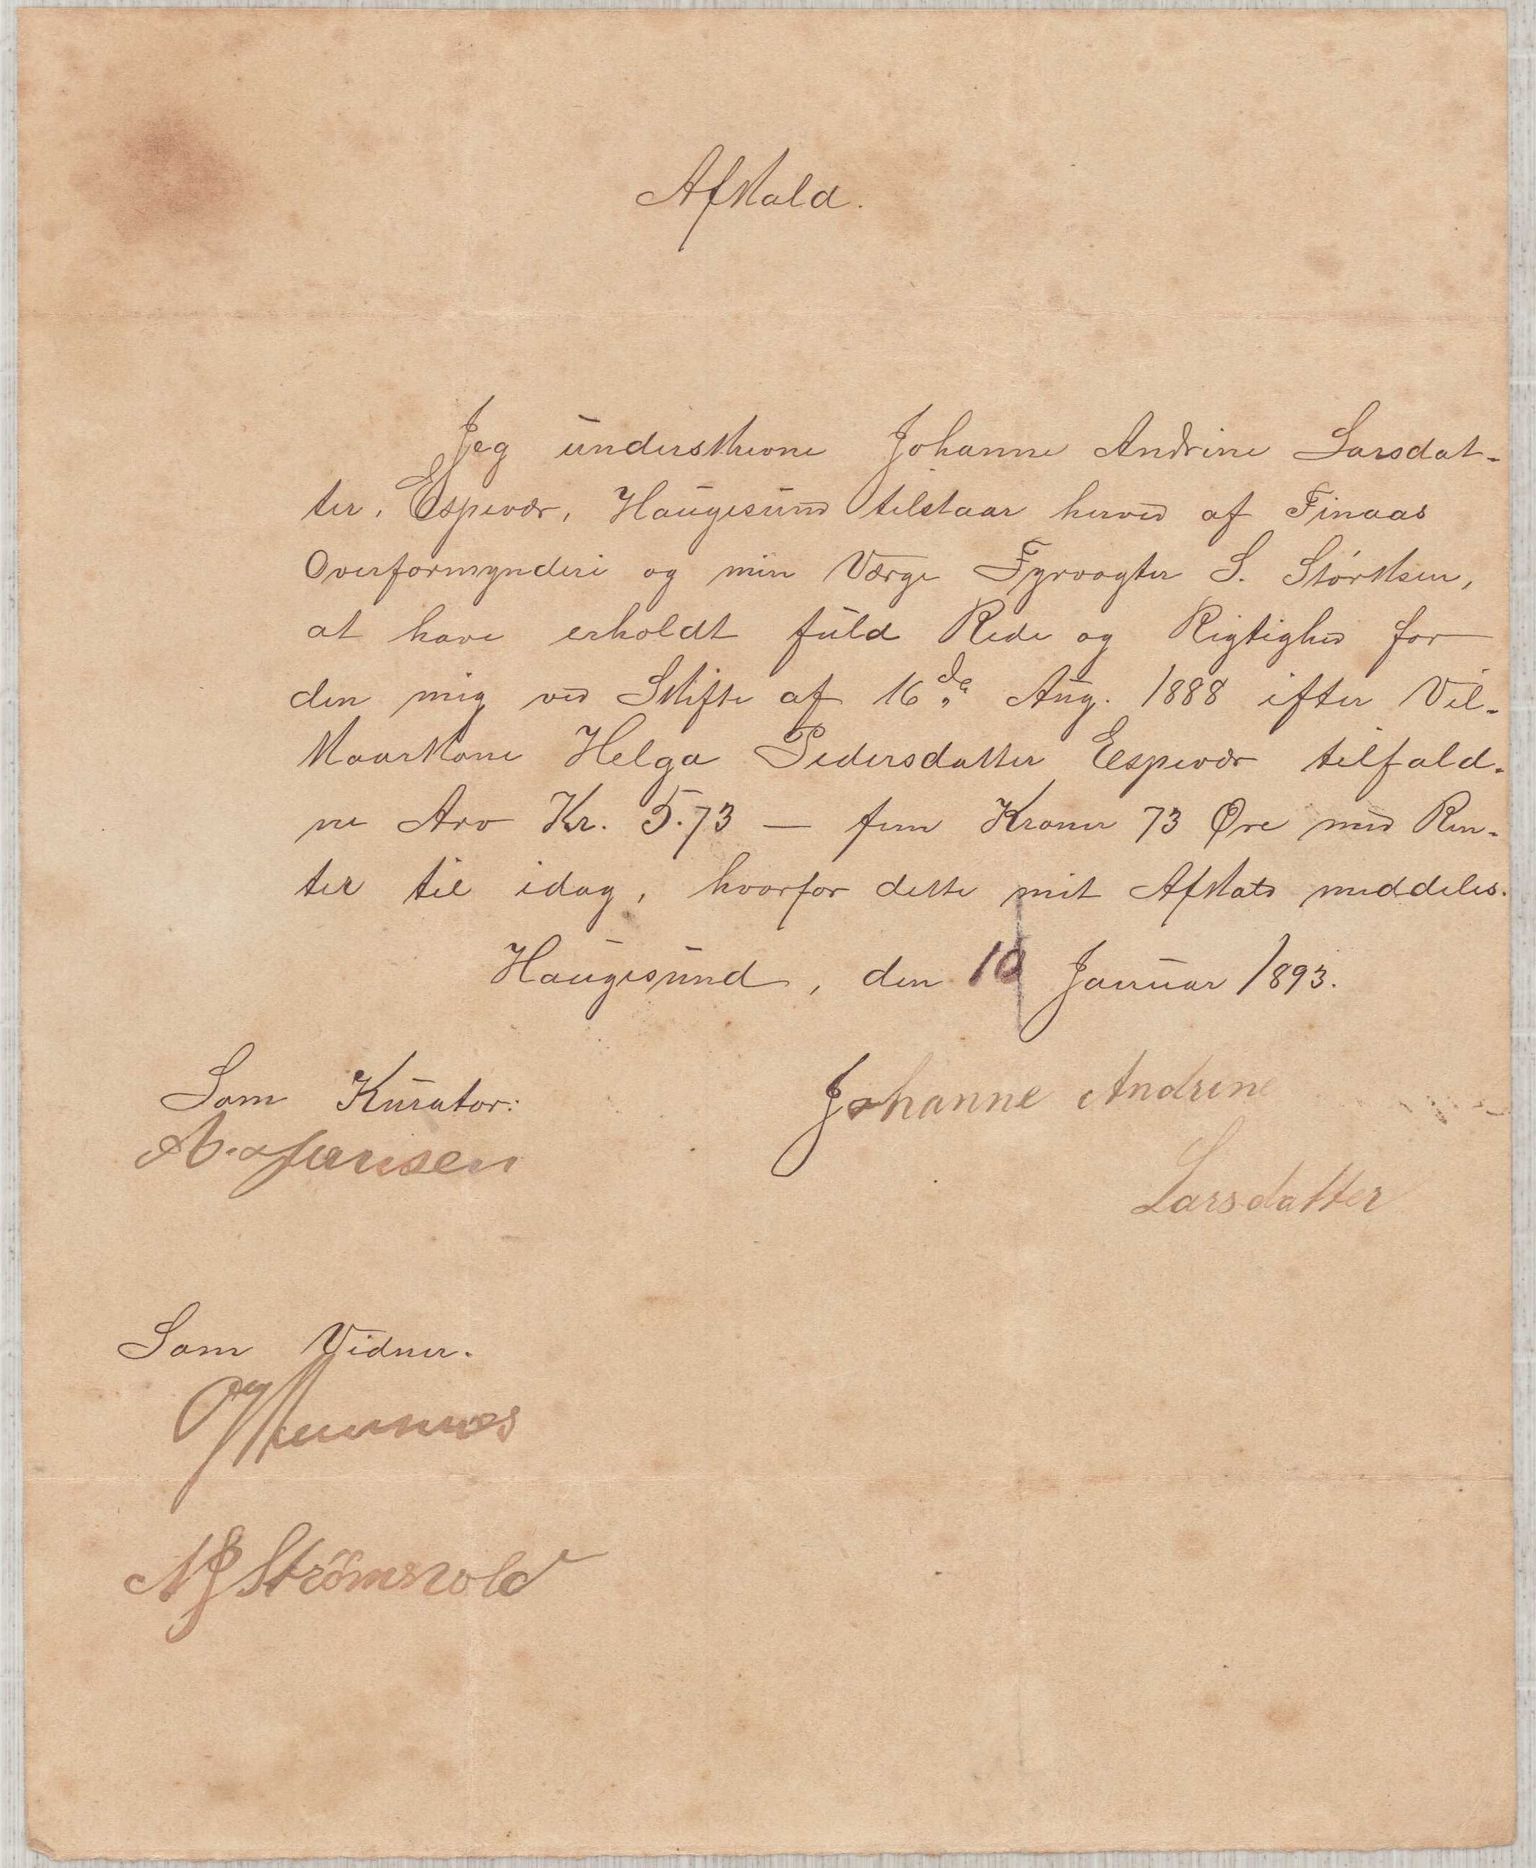 Afkald.
Jeg underskrevne Johanne Andrine Larsdat-
ter, Espevær, Haugesund tilstaar herved af Finaas
Overformynderi og min Værge Fyrvogter S. Størksen,
at have erholdt fuld Rede og Rigtighed for
den mig ved Skifte af 16de Aug. 1888 efter Vil-
kaarkone Helga Pedersdatter Espevær tilfald-
ne Arv Kr. 5.73 — fem Kroner 73 Øre med Ren-
ter til idag, hvorfor dette mit Afkald meddeles.
Haugesund, den 10 Januar 1893.
Som Kurator:
Johanne Andrine
A. Jansen
Larsdatter
Som Vidner.
Strömsvold